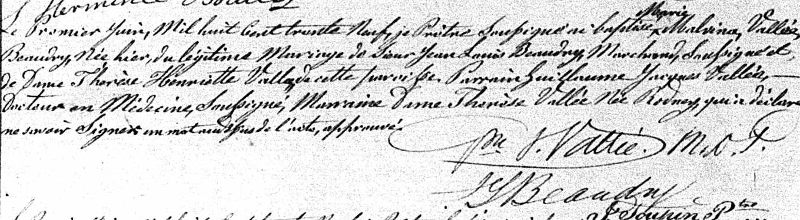 Le Premier Juin, Mil huit Cent trente Neuf, je Prêtre Soussigné ai baptisé Marie Malvina Vallée
Beaudry Née hier, du légitime Mariage de Sieur Jean Louis Beaudry, Marchand, Soussigné et
de Dame Therèse Henriette Vallée, de cette paroisse. Parrain Guillaume Jacques Vallée,
Docteur en Médecine, Soussigné, Marraine Dame Therèse Vallée Née Rodney, qui a déclaré
ne savoir Signer un mot au dessus de l'acte, approuvé.
J. Vallée. M.D.
Beaudry
Ptre